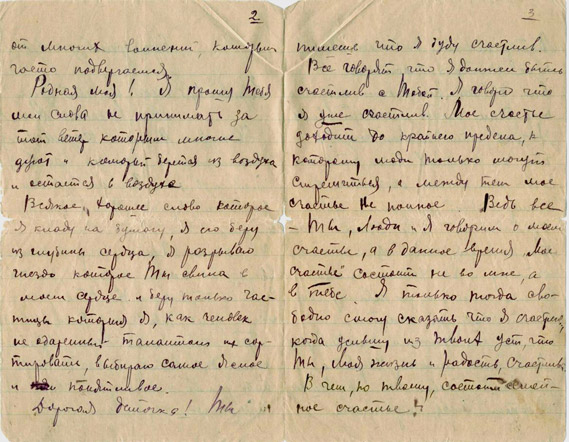 2
от многих волнений, которым
часто подвергаемся.
Родная моя! Я прошу Тебя
мои слова не принимать за
тот ветер которым многие
и который берется из воздуха
и остается в воздухе
Всякое, хорошее слово которое
я кладу на бумагу, я его беру
из глубины сердца, я разрываю
гнездо которое Ты свила в
моем сердце и беру только час-
тицы которые я, как человек
не одаренный талантами их сор-
тировать, выбираю самое ясное
и понятливое.
Дорогая деточка! Ты
3
что я буду счастлив.
Все говорят что я должен быть
счастлив с Тобой. Я говорю что
я уже счастлив. Мое счастье
доходит до крайнего предела, к
которому люди только могут
стремиться, а между тем мое
счастье не полное. Ведь все
- Ты, Люди и Я говорим о моем
счастье, а в данное время мое
счастье состоит не во мне, а
в тебе. Я только тогда сво-
бодно смогу сказать что я счастлив,
когда услышу из твоих уст, что
Ты, моя жизнь и радость, счастлива
В чем, по твоему, состоит
ное счастье?